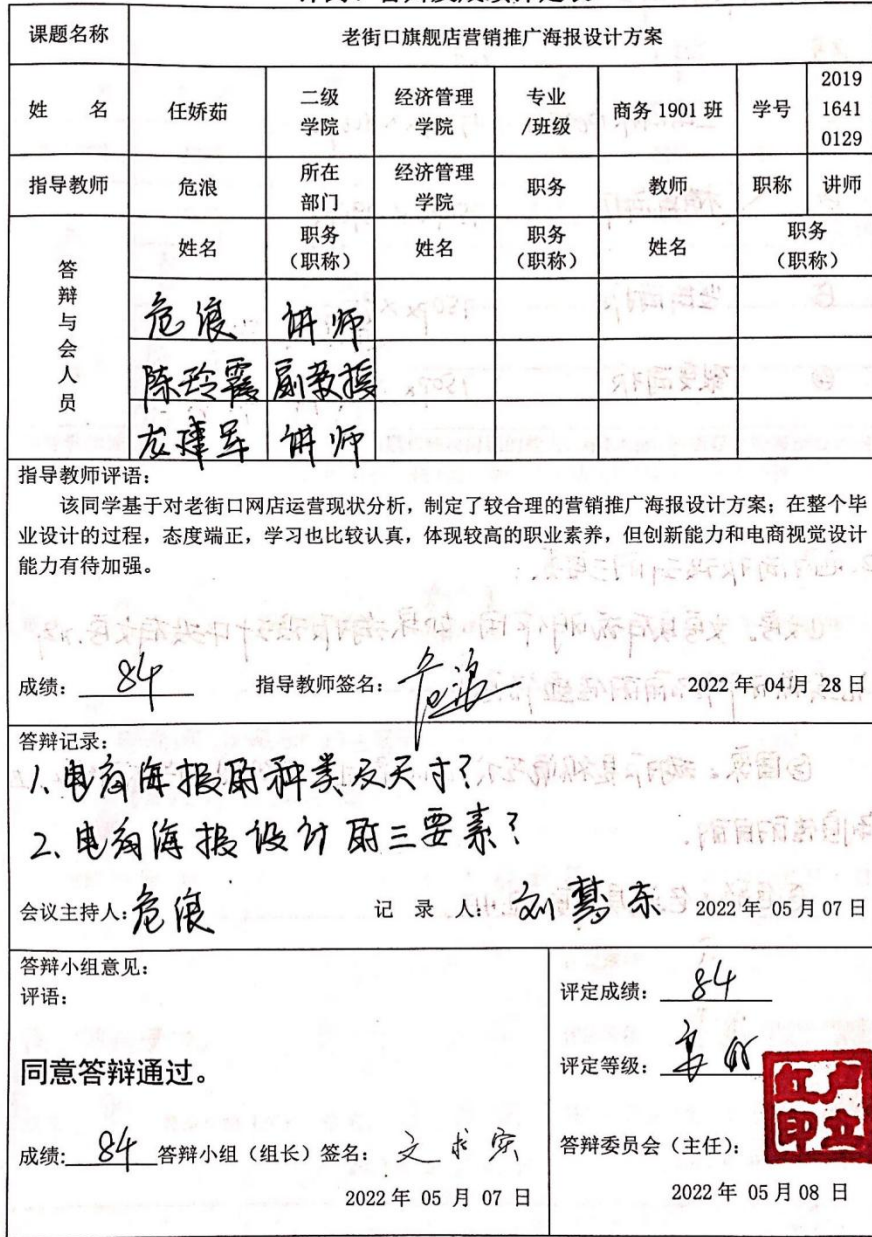 课题名称 老街口旗舰店营销推广海报设计方案
姓 名 任娇茹 二级学院 经济管理学院 专业/班级 商务 1901 班 学号 2019 1641 0129
指导教师 危浪 所在部门 经济管理学院 职务 教师 职称 讲师
答辩与会人员 姓名 职务（职称） 姓名 职务（职称） 姓名 职务（职称）
危浪 讲师
陈玲霞 副教授
讲师
指导教师评语：
该同学基于对老街口网店运营现状分析，制定了较合理的营销推广海报设计方案；在整个毕
业设计的过程，态度端正，学习也比较认真，体现较高的职业素养，但创新能力和电商视觉设计
能力有待加强。
成绩： 84 指导教师签名： 危浪 2022 年 04 月 28 日
答辩记录：
1、电商海报的种类及尺寸？
2、电商海报设计的三要素？
会议主持人：危浪 记 录 人： 2022 年 05 月 07 日
答辩小组意见：
评语：
同意答辩通过。
成绩： 84 答辩小组（组长）签名：
2022 年 05 月 07 日
评定成绩： 84
评定等级：
答辩委员会（主任）：
2022 年 05 月 08 日